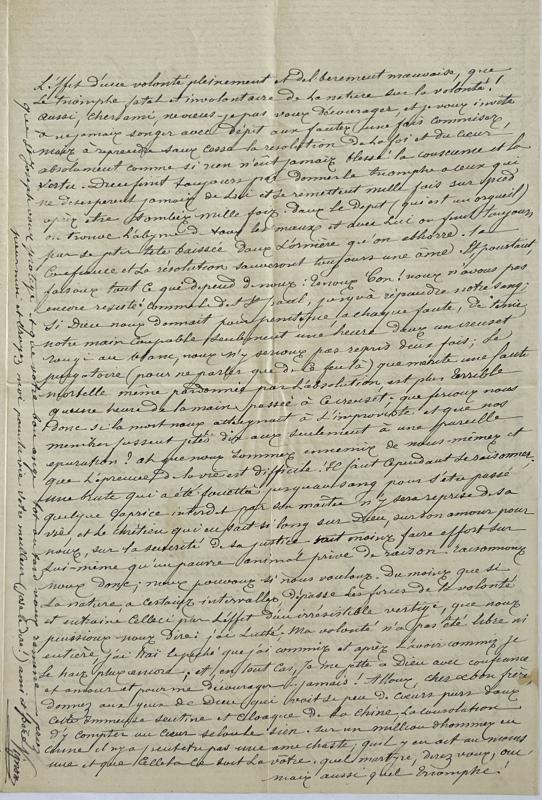 L'effet d'une volonté pleinement et délibérement mauvaise, que
le triomphe fatal et involontaire de la nature sur la volonté!
aussi, cher ami, ne veux-je pas vous décourager et je vous invite
à ne jamais songer avec dépit aux fautes une fois commises,
mais à reprendre sans cesse la résolution de la foi et du cœur,
absolument comme si rien n'eut jamais blessé la conscience et la
vertu. Dieu finit toujours par donner le triomphe à ceux qui
ne désespèrent jamais de Lui et se remettent mille fois sur pied
après être retombés mille fois. Dans le dépit (qui est un orgueil)
on trouve l'abyme de tous les maux et avec lui on finit toujours
par se jeter tête baissée dans l'ornière qu'on abhorre. La
Confiance et la résolution sauveront toujours une âme. Et pourtant
faisons tout ce que dépend de nous: vous n'avez pas
encore résisté, comme le dit St Paul, jusqu'à répandre votre sang;
Si Dieu nous donnait pour pénitence à chaque faute, de tenir
notre main coupable seulement une heure dans un creuset
rougi au blanc, nous n'y serions pas repris deux fois; Le
purgatoire (pour ne parler que de ce feu là) que mérite une faute
mortelle même pardonnée par l'absolution est plus terrible
qu'une heure de la main passée à ce creuset: que ferions nous
donc si la mort nous atteignait à l'improviste et que nos
membres fussent jetés dix ans seulement à une pareille
épuration? ah que nous sommes ennemis de nous-mêmes et
que l'épreuve de la vie est difficile! Il faut cependant se raisonner;
une brute qui a été fouettée jusqu'au sang pour s'être passé
quelque caprice interdit par son maître n'y sera reprise de sa
vie, et le chrétien qui en sait si long sur Dieu, sur son amour pour
nous, sur la sévérité de sa justice moins faire effort sur
lui-même qu'un pauvre animal privé de raison! raisonnons
nous donc; nous pouvons si nous voulons. Du moins que si
la nature a certains intervalles dépasse les forces de la volonté
et entraine celle-ci par l'effet d'un irrésistible vertige, que nous
puissions nous dire: j'ai lutté. Ma volonté n'a pas été libre ni
entière, j'ai haï le péché que j'ai commis et après l'avoir commis je
le hais plus encore; et, en tout cas, je me jette à Dieu avec confiance
et amour et pour me décourager jamais! Allons, cher et bon frère
donnez aux yeux de Dieu qui voit si peu de cœurs purs dans
cette immense sentine et cloaque de la Chine la consolation
d'y compter un cœur selon le sien. sur un million d'hommes en
Chine il n'y a peut-être pas une âme chaste, qu'il y en ait au moins
une et que celle-là ce soit la votre. quel martyre, direz vous, oui
mais aussi quel triomphe!
que St Joseph vous protège et que votre bon ange